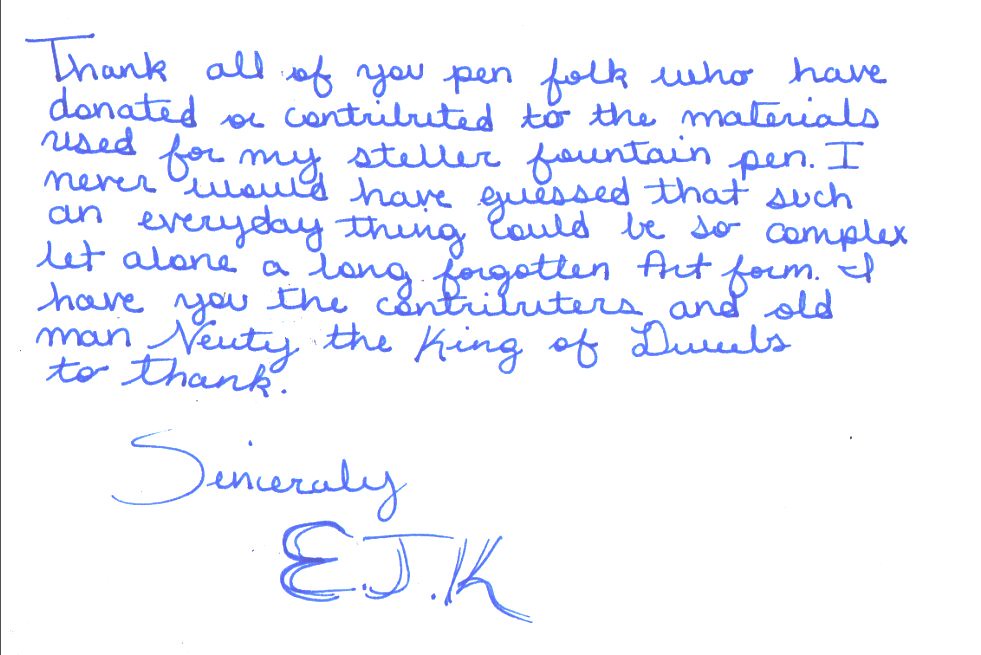 Thank all of you pen folk who have
donated or contributed to the materials
used for my steller fountain pen. I
never would have guessed that such
an everyday thing could be so complex
let alone a long forgotten Art form. I
have you the contributers and old
man the King of
to thank.
Sinceraly
E.J.K